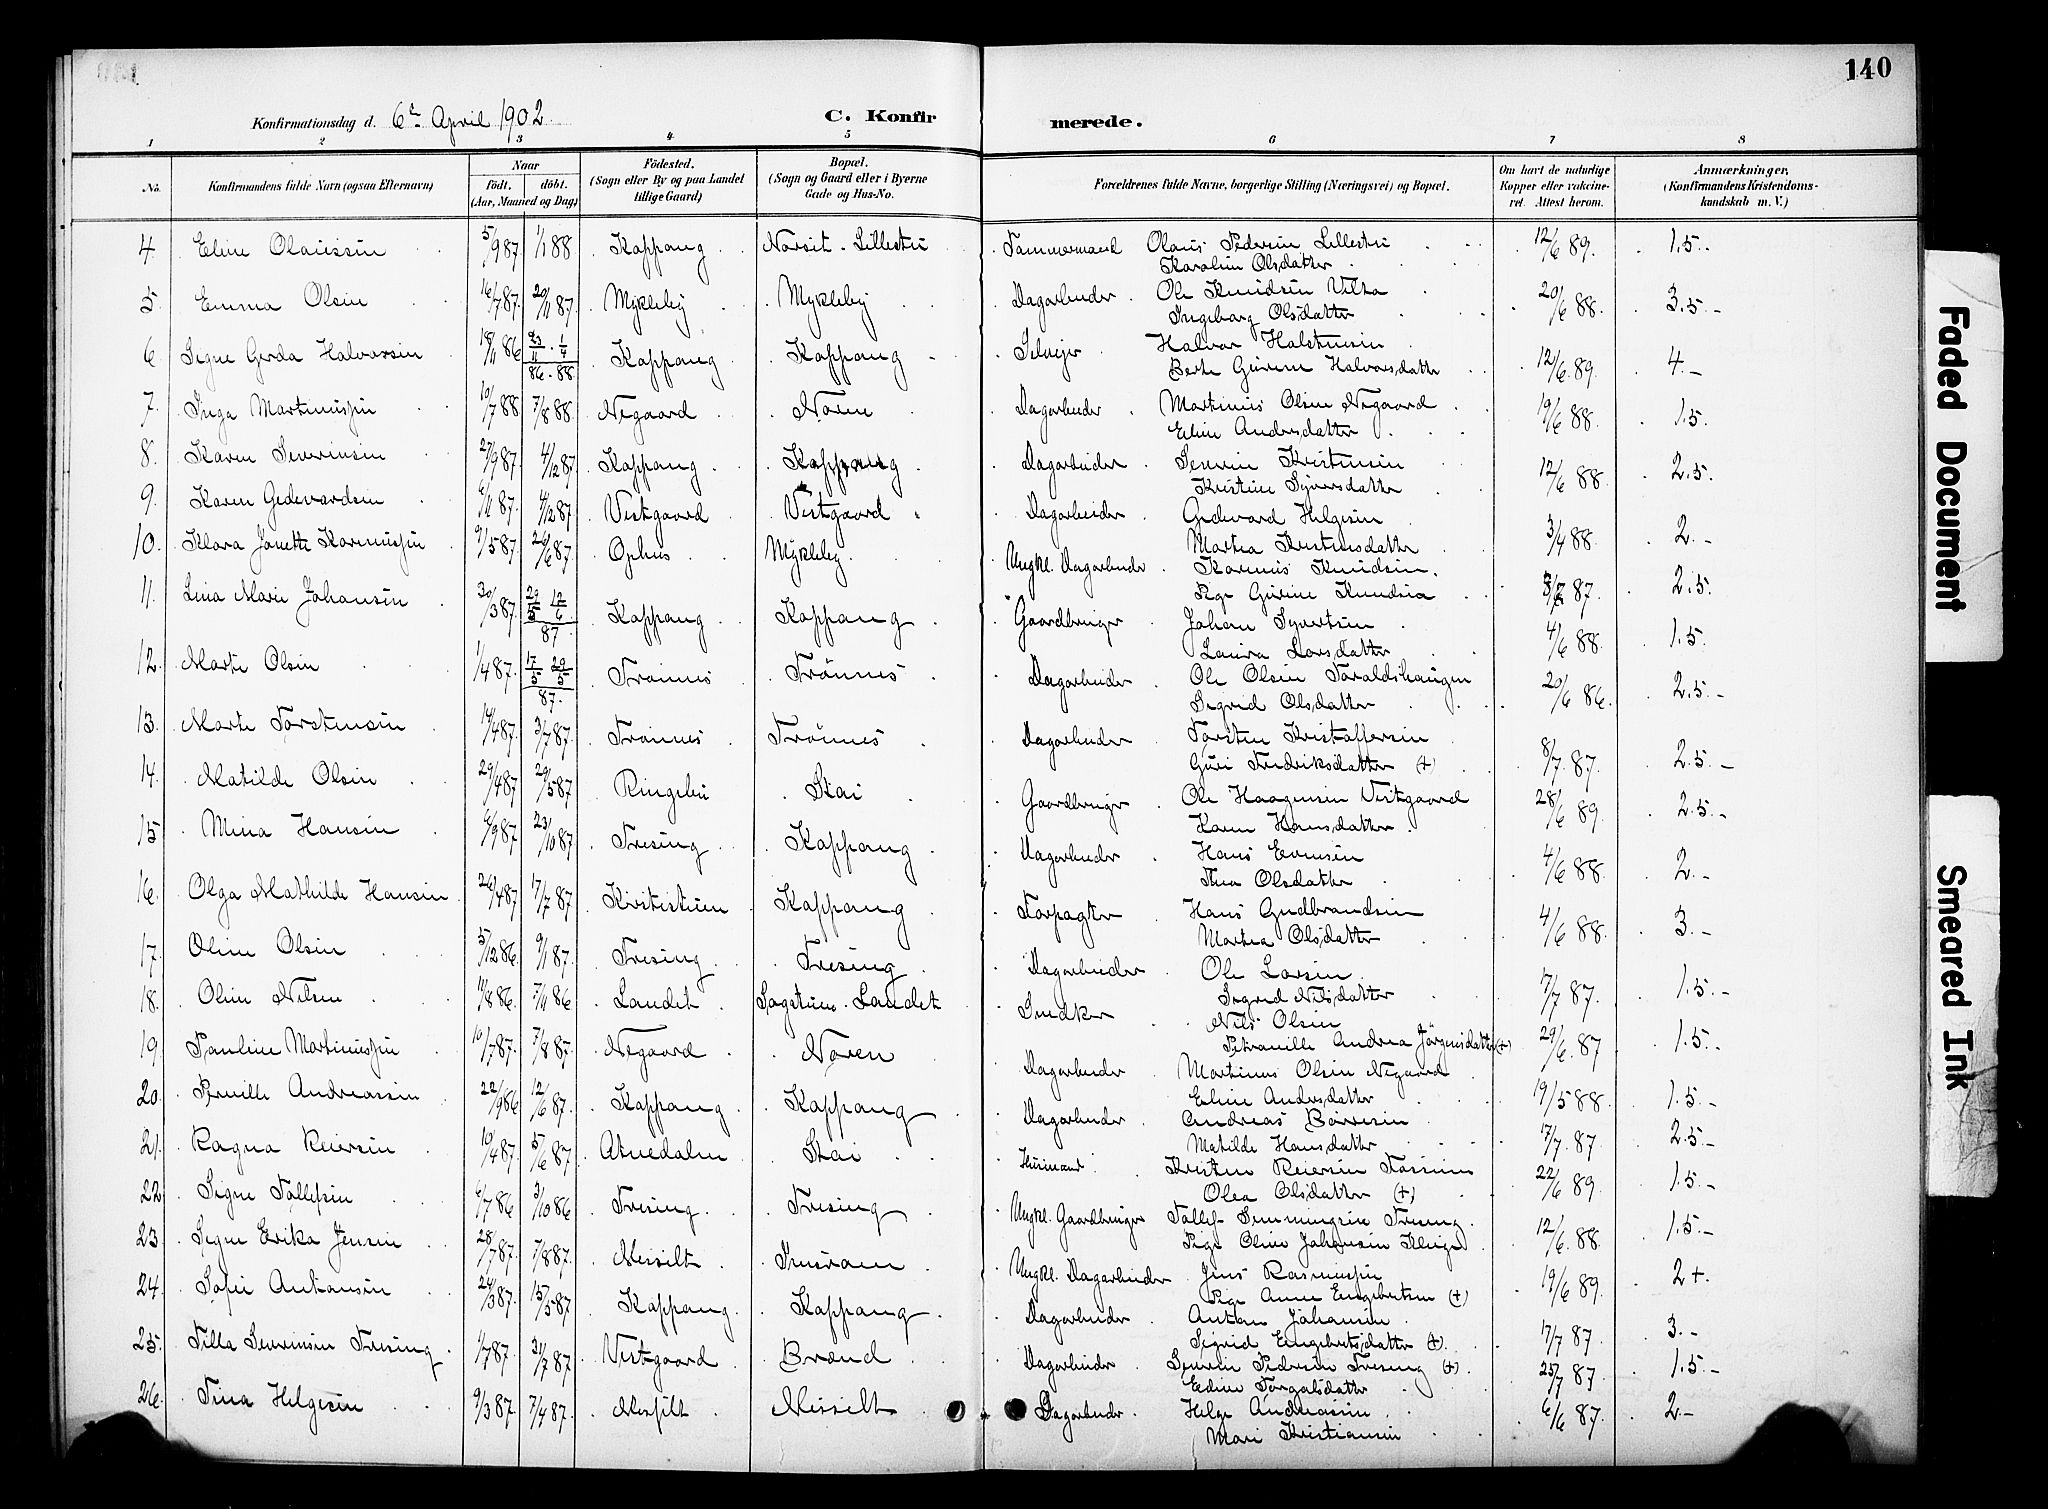 140
Konfirmationsdag d. 6te April 1902.
C. Konfirmerede.
1 2 3 4 5 6 7 8
No. Konfirmandens fulde Navn (ogsaa Efternavn) Naar født. døbt. (Aar, Maaned og Dag) Födested. (Sogn eller By og paa Landet tillige Gaard) Bopæl. (Sogn og Gaard eller i Byerne Gade og Hus-No. Forældrenes fulde Navne, borgerlige Stilling (Næringsvei) og Bopæl. Om havt de naturlige Kopper eller vaccineret. Attest herom. Anmærkninger, (Konfirmandens Kristendomskundskab m. V.)
4. Eline Olaussen 5/9 87. 1/1 88 Koppang Norset. Lillestu Tømmermand Olaus Pedersen Lillestu 12/6 89. 1.5.
Karoline Olsdatter
5. Emma Olsen 16/7 87. 20/11 87. Mykleby Mykleby Dagarbeider Ole Knudsen 20/6 88. 3.5.
Ingeborg Olsdatter
6. Signe Gerda Halvorsen 18/11 86 23/11 86 . 1/4 88 Koppang Koppang Halvor Halstensen 12/6 89. 4.
Berte Gurine Halvorsdatter
7. Inga Martinussen 10/7 88 7/8 88 Negaard Noren Dagarbeider Martinus Olsen Negaard 19/6 88. 1.5.
Eline Andersdatter
8. Karen Severinsen 27/9 87. 4/12 87 Koppang Koppang Dagarbeider Severin Kristensen 12/6 88. 2.5.
Kristine Syversdatter
9. Karen Gedevardsen 6/11 87. 4/12 87 Vestgaard Vestgaard Dagarbeider Gedevard Helgesen 3/4 88. 2.
Martea Kristensdatter
10. Klara Janette Karenussen 9/5 87. 26/6 87. Ophus Mykleby Ungkl. Dagarbeider Karenus Knudsen. 87. 2.5.
Pige Gurine Knudsen
11. Lina Marie Johansen 30/3 87. 29/5 12/6 87. Koppang Koppang Gaardbruger Johan Syvertsen 4/6 88. 1.5.
Laura Larsdatter
12. Marte Olsen 1/4 87. 17/5 29/5 87. Trønnes Trønnes Dagarbeider Ole Olsen Toraldshaugen 20/6 86. 2.5.
Sigrid Olsdatter
13. Marte Torstensen 14/4 87. 3/7 87. Trønnes Trønnes Dagarbeider Torsten Kristoffersen 8/7 87. 2.5.
Guri Fredriksdatter (+)
14. Matilde Olsen 29/4 87 29/5 87 Ringebu Stai Gaardbruger Ole Haagensen Vestgaard 28/6 89. 2.5.
Karen Hansdatter
15. Mina Hansen 6/9 87 23/10 87 Tresing Koppang Dagarbeider Hans Evensen 4/6 88. 2.
Thea Olsdatter
16. Olga Mathilde Hansen 26/4 87 17/7 87 Koppang Forpagter Hans Gudbrandsen 4/6 88. 3.
Martea Olsdatter
17. Oline Olsen 5/12 86. 9/1 87. Tresing Tresing Dagarbeider Ole Larsen 17/7 87. 1.5.
Sigrid Nilsdatter
18. Oline Nilsen 11/8 86. 7/11 86 Landet Sagstuen. Landet Snedker Nils Olsen 29/6. 87 1.5.
Petronille Andrea Jørgensdatter (+)
19. Pauline Martinussen 10/7 87. 7/8 87. Negaard Noren Dagarbeider Martinus Olsen Negaard 19/5 88. 1.5.
Eline Andersdatter
20. Pernille Andreassen 22/9 86 12/6 87. Koppang Koppang Dagarbeider Andreas Børresen 17/7. 87. 2.5.
Matilde Hansdatter
21. Ragna Reiersen 10/4 87 5/6 87 Atnedalen Stai Husmand Kristen Reiersen 22/6 89. 1.5.
Olea Olsdatter (+)
22. Signe Tollefsen 6/7 86 3/10 86 Tresing Tresing Ungkl. Gaardbruger Tollef Semmingsen Tresing 12/6. 88. 1.5.
Pige Oline Johansen
23. Signe Erika Jensen 28/7 87. 7/8 87. Messelt Ungkl. Dagarbeider Jens Rasmussen 19/6 89. 2+.
Pige Anne Engebretsen (+)
24. Sofie Antonsen 24/3 87. 15/5 87 Koppang Koppang Dagarbeider Anton Johansen 17/7 87. 3.
Sigrid Engebretsdatter (+)
25. Tilla Severinsen Tresing 1/7 87. 31/7 87 Vestgaard Brænd Dagarbeider Severin Pedersen Tresing (+) 25/7 87. 1.5.
Eline Torgalsdatter
26. Tina Helgesen 9/3 87. 7/4 87. Messelt Messelt Dagarbeider Helge Andreassen 6/6 87. 2.
Mari Kristiansen
Faded Document
Smeared Ink